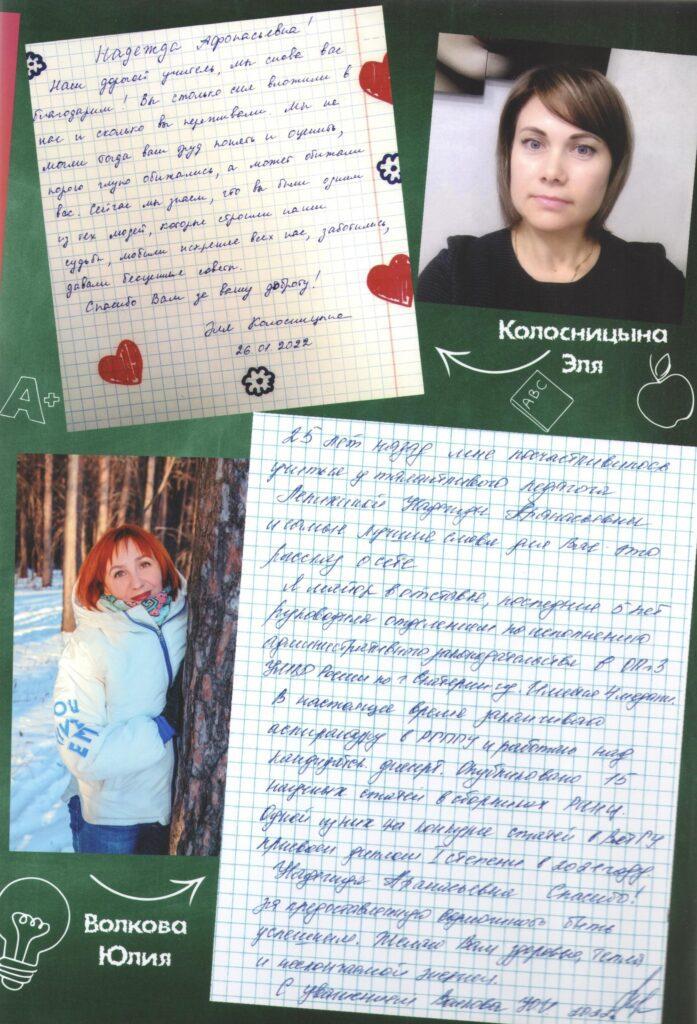 Надежда Афонасьевна!
Наш дорогой учитель, мы снова вас
благодарим! Вы столько сил вложили в
нас и сколько вы переживали. Мы не
могли тогда ваш труд понять и оценить,
порою глупо обижались, а может обижали
вас. Сейчас мы знаем, что вы были одним
из тех людей, которые строили наши
судьбы, любили искренне всех нас, заботились,
давали бесценные советы.
Спасибо Вам за вашу доброту!
Эля Колосницына
26.01.2022
Колосницына
Эля
A+
ABC
25 лет назад мне посчастливилось
учиться у талантливого педагога
Лепихиной Надежды Афанасьевны
и самые лучшие слова для Вас - это
рассказ о себе.
Я майор в отставке, последние 5 лет
руководила отделением по исполнению
административного законодательства в ОП №3
УМВД России по г. Екатеринбургу. Имею 4 медали.
В настоящее время заканчиваю
аспирантуру в РГППУ и работаю над
кандидатск. диссерт. Опубликовано 15
научных статей в сборниках РИНЦ.
Одной из них на конкурсе статей в
присвоен диплом I степени в 2021 году
Надежда Афанасьевна Спасибо!
за предоставленную возможность быть
успешной. Желаю Вам здоровья, тепла
и нескончаемой энергии.
С уважением Волкова Ю.И. 2022
Волкова
Юлия